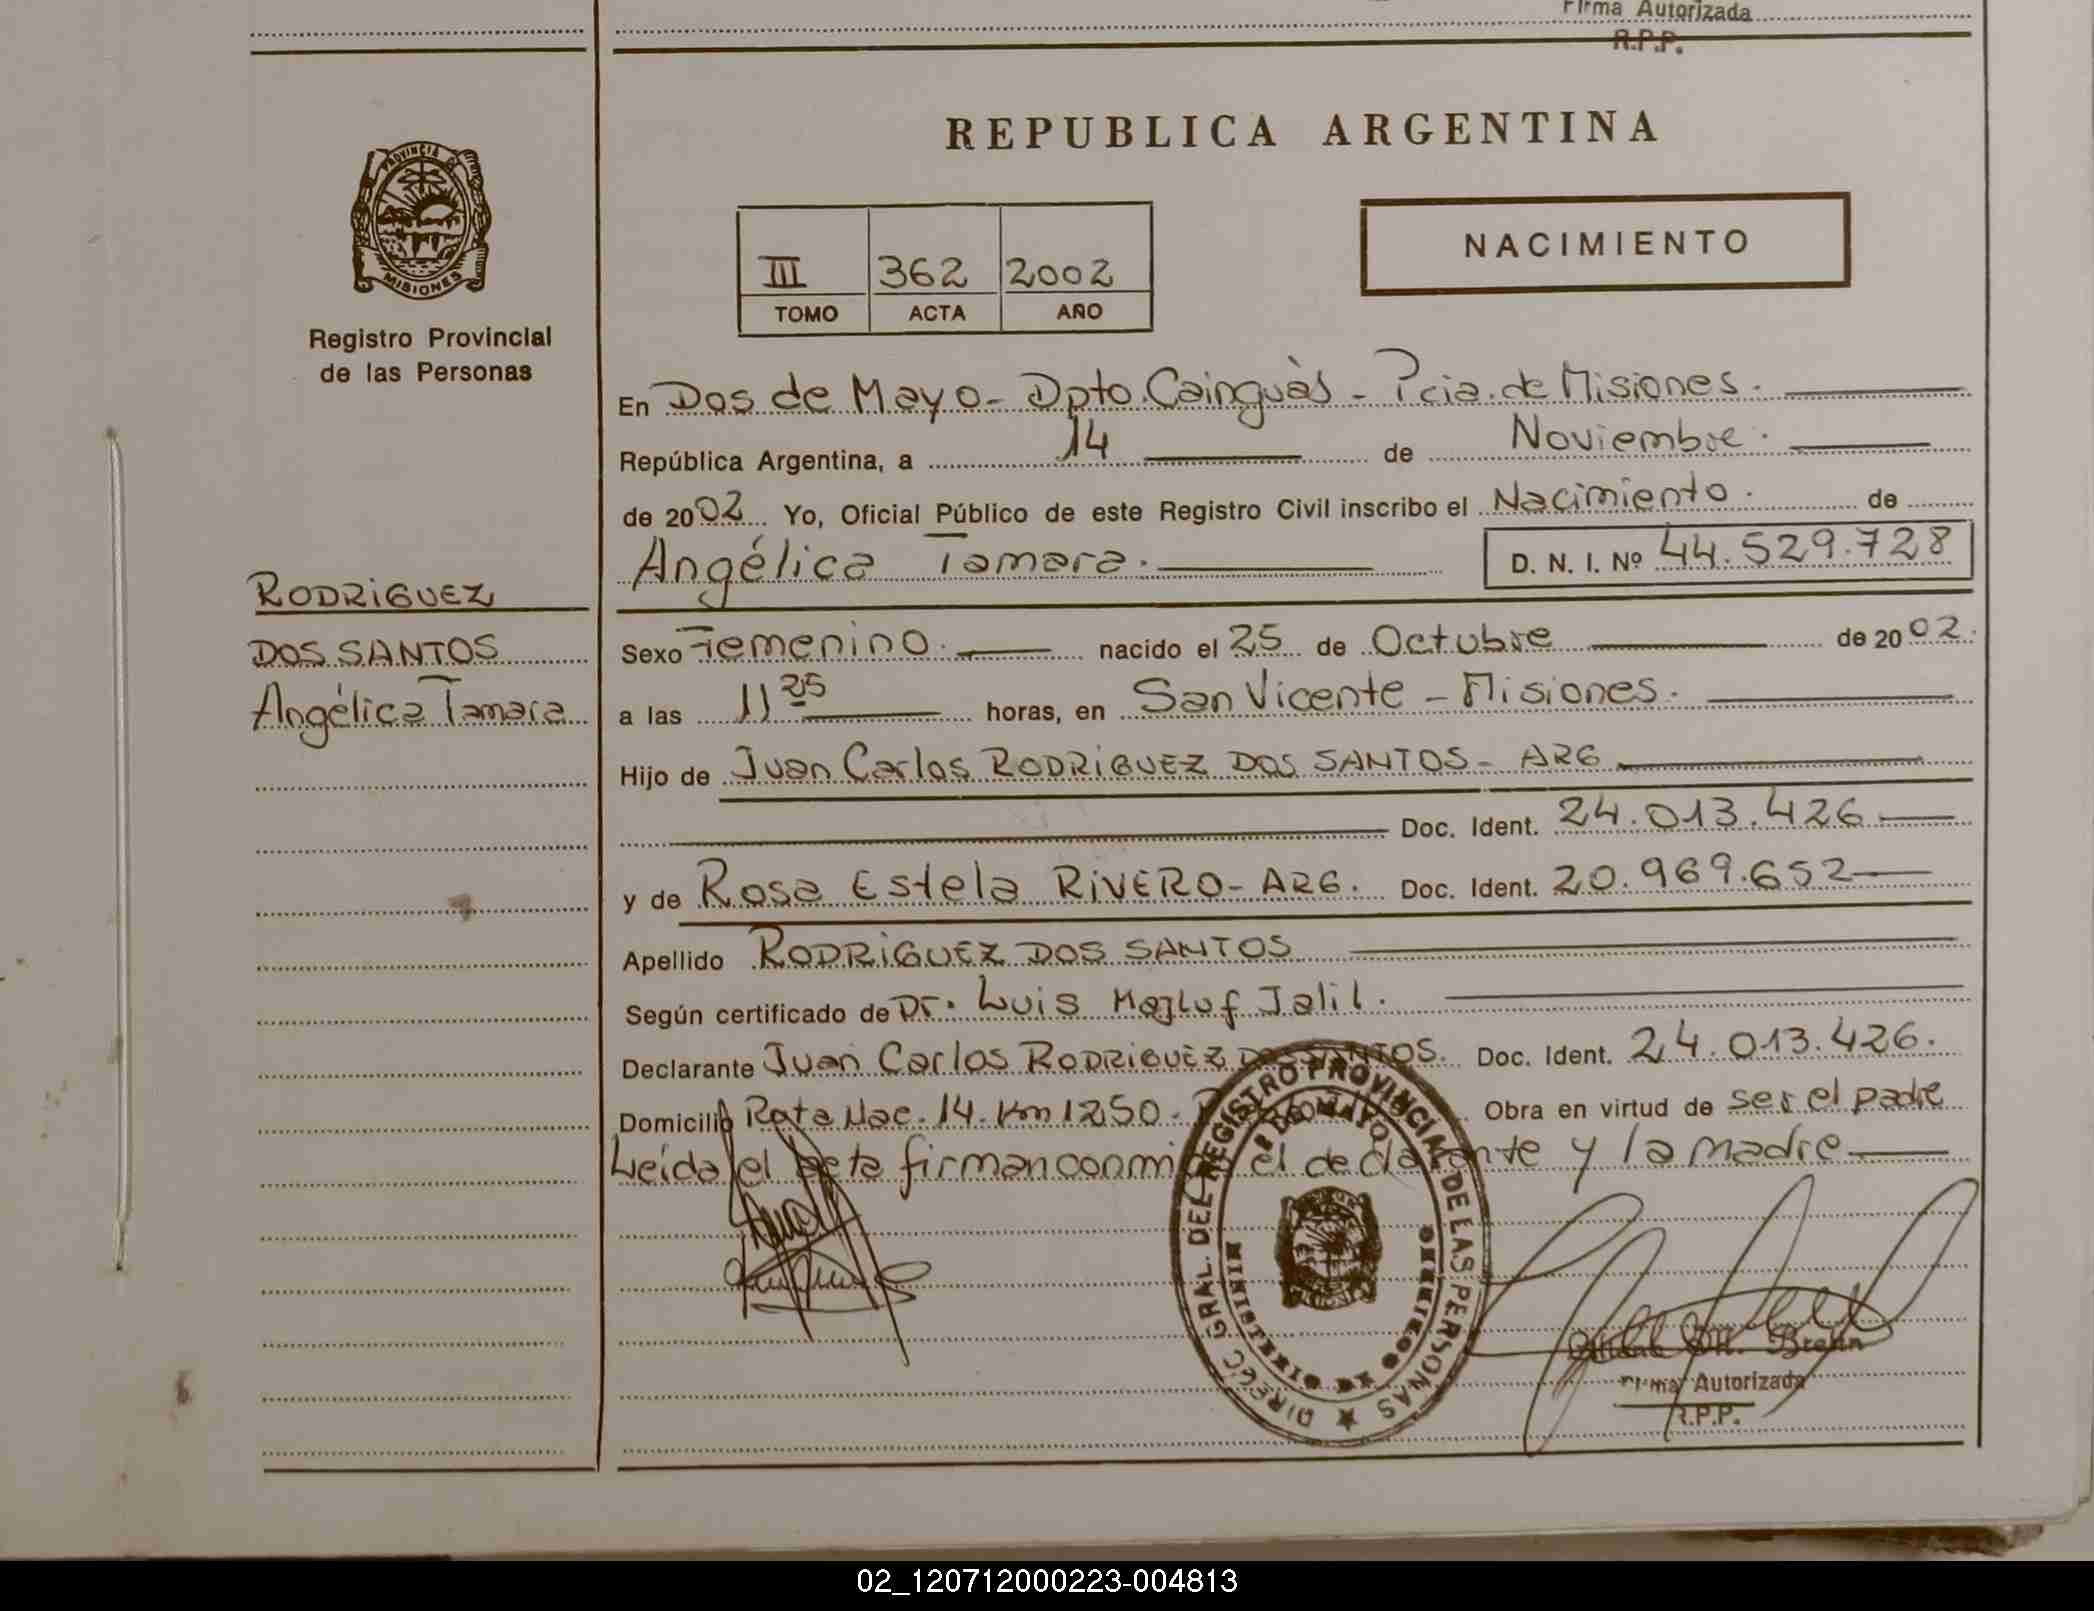 Firma Autorizada
R.P.P.
REPUBLICA ARGENTINA
PROVINCIA DE
MISIONES
Registro Provincial
de las Personas
NACIMIENTO
III 362 2002
TOMO ACTA AÑO
En Dos de Mayo - Dpto. Cainguàs - Pcia. de Misiones.
República Argentina, a 14 de Noviembre.
de 2002 Yo, Oficial Público de este Registro Civil inscribo el Nacimiento. de
Angélica Tamara. D. N. I. Nº 44.529.728
RODRIGUEZ
DOS SANTOS
Angélica Tamara
Sexo Femenino. nacido el 25 de Octubre de 2002.
a las 11 25 horas, en San Vicente - Misiones.
Hijo de Juan Carlos RODRIGUEZ DOS SANTOS - ARG
Doc. Ident. 24.013.426
y de Rosa Estela RIVERO - ARG. Doc. Ident. 20.969.652
Apellido RODRIGUEZ DOS SANTOS
Según certificado de Dr. Luis Mazluf Jalil.
Declarante Juan Carlos RODRIGUEZ DOS SANTOS. Doc. Ident. 24.013.426.
Domicilio Rota Nac. 14. Km 1250. Obra en virtud de ser el padre
Leída el acta firman conmigo el declarante y la madre
DIRECC. GRAL. DEL REGISTRO PROVINCIAL DE LAS PERSONAS
2 DE MAYO
MINISTERIO DE GOBIERNO
Brehn
Firma Autorizada
R.P.P.
02_120712000223-004813